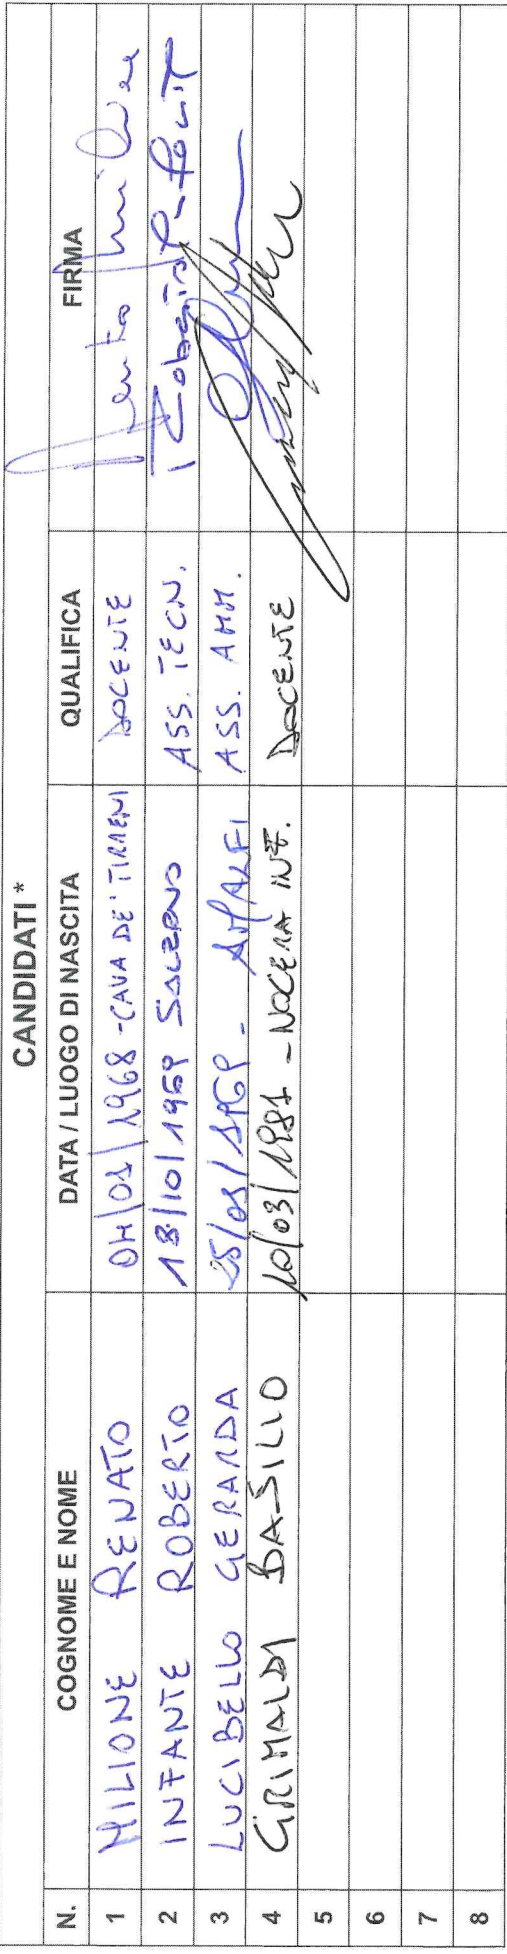 CANDIDATI *
N. COGNOME E NOME DATA / LUOGO DI NASCITA QUALIFICA FIRMA
1 MILIONE RENATO 04/01/1968 - CAVA DE' TIRRENI DOCENTE
2 INFANTE ROBERTO 18/10/1959 SALERNO ASS. TECN.
3 LUCIBELLO GERARDA AMALFI ASS. AMM.
4 GRIMALDI BASILIO 10/03/1981 - NOCERA INF. DOCENTE
5
6
7
8